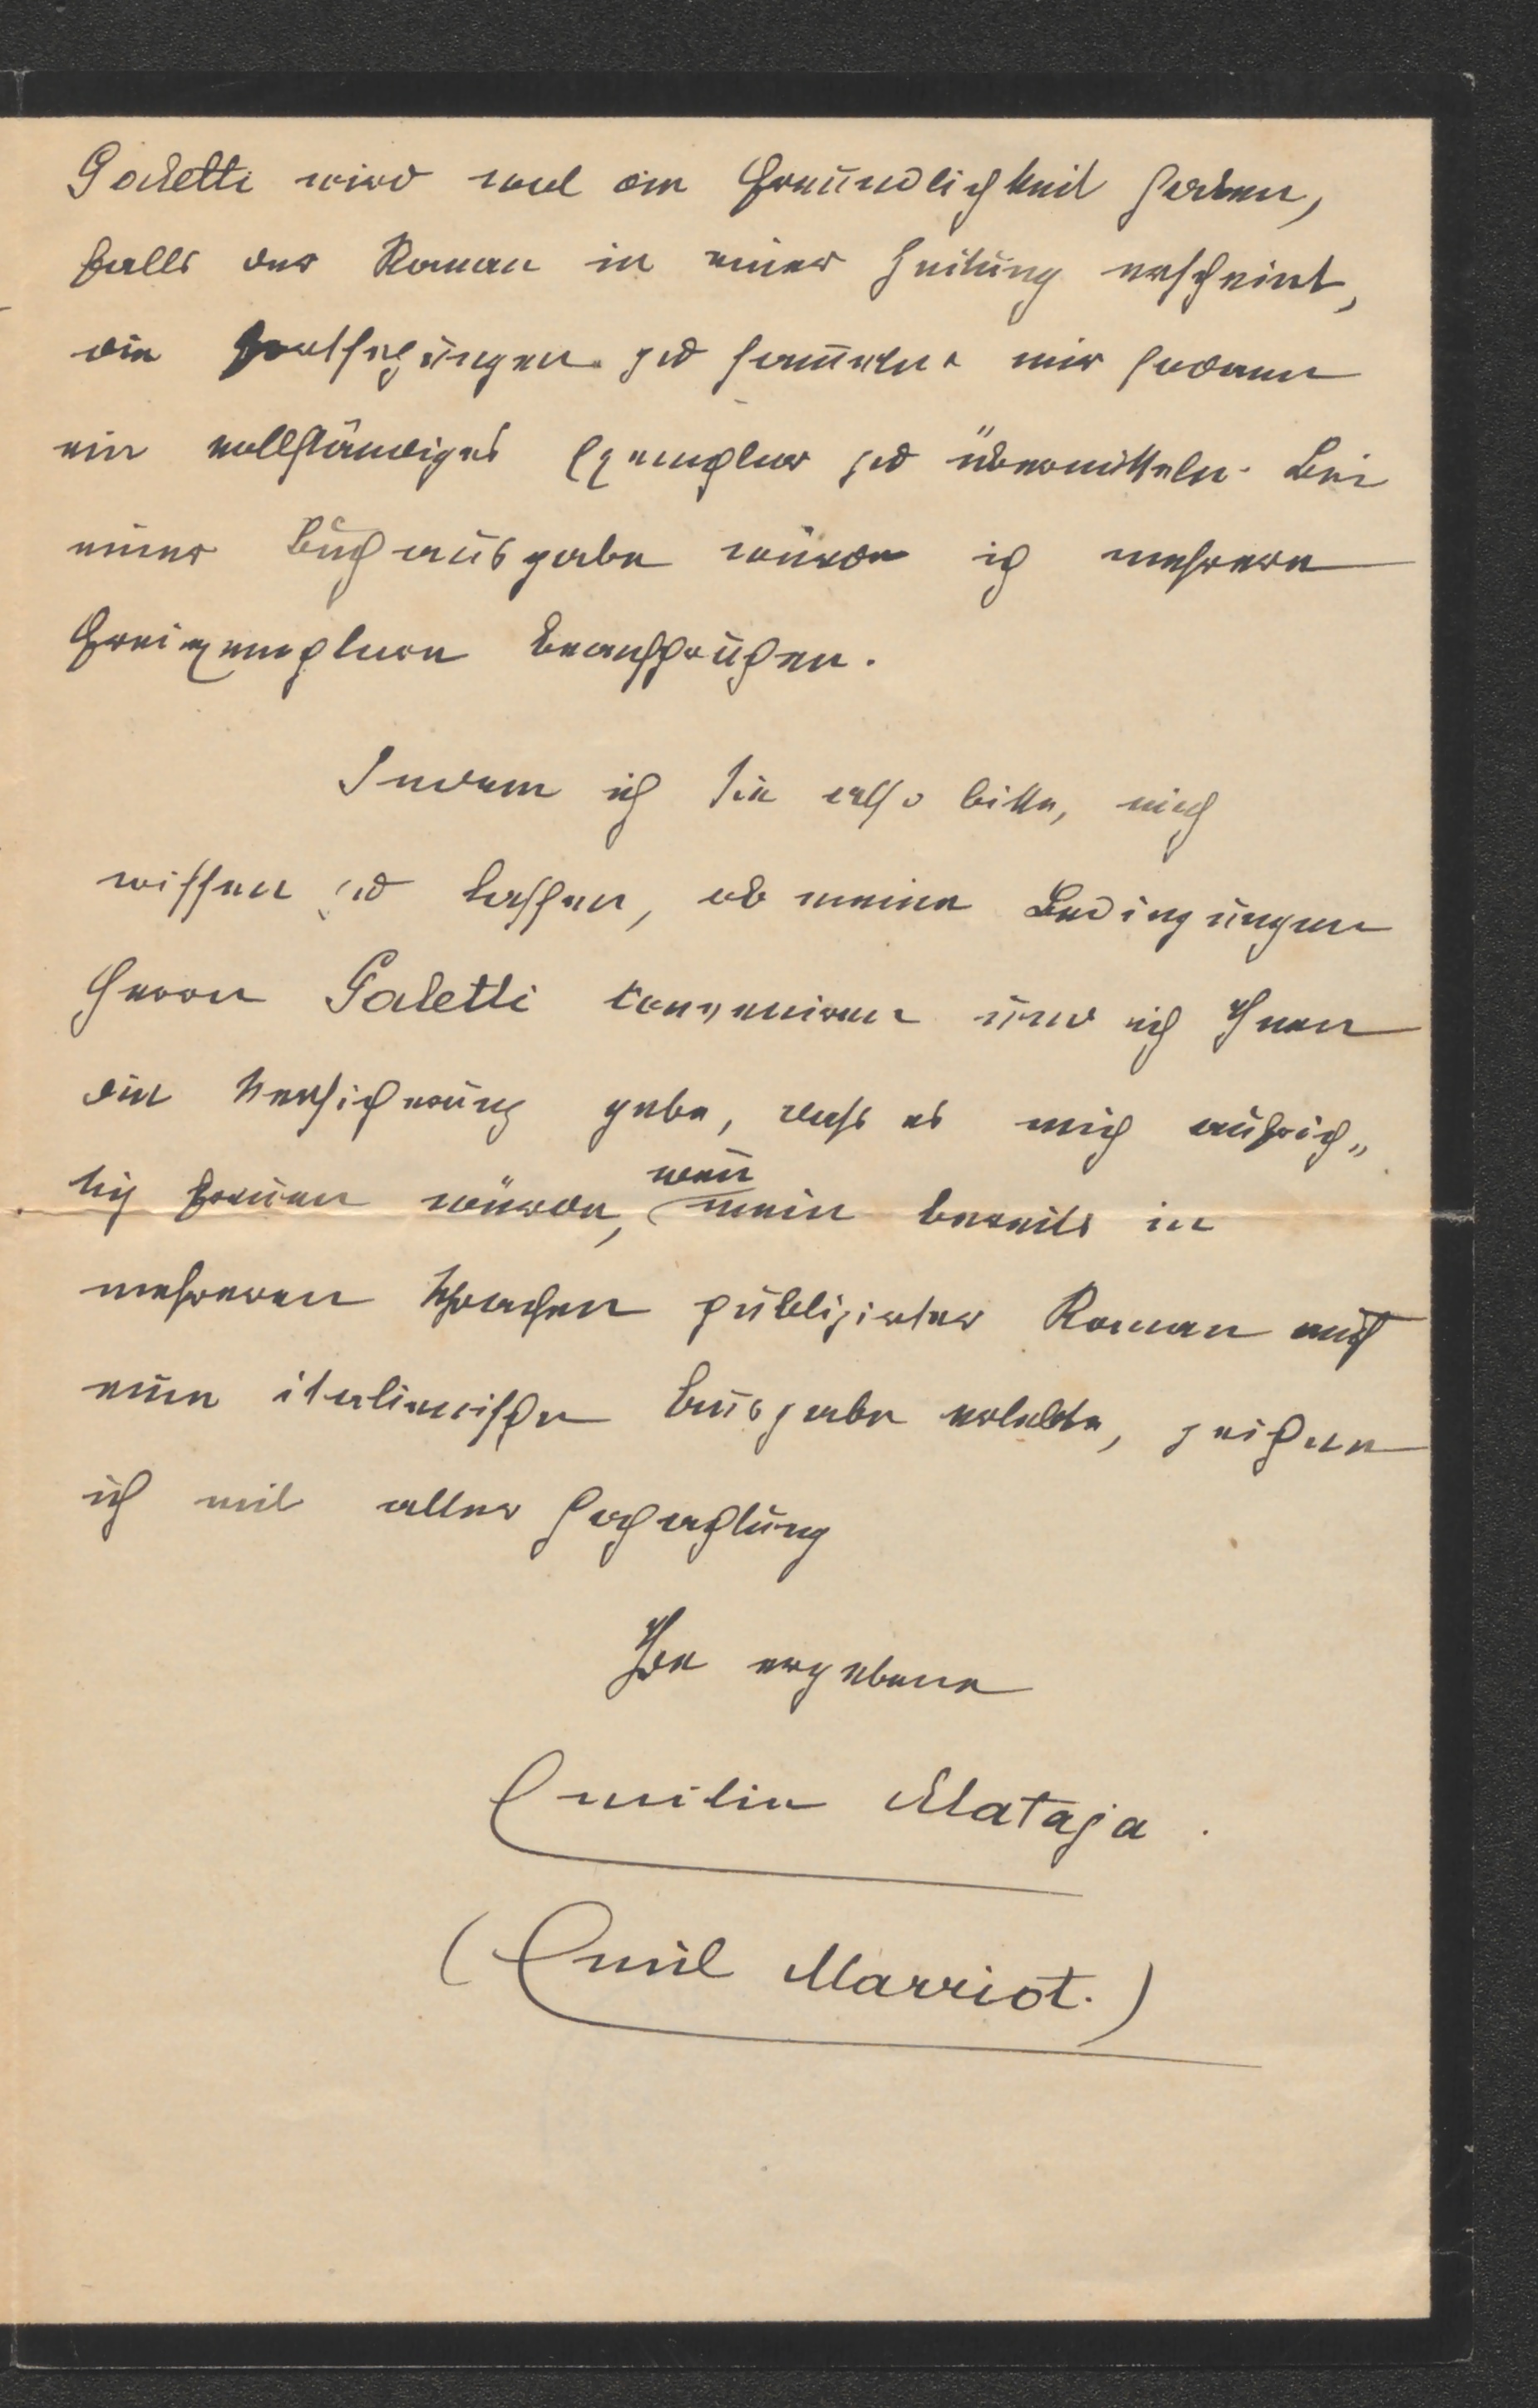 Galetti wird wol die Freundlichkeit haben,
falls der Roman in einer Zeitung erscheint,
die Fortsetzungen zu sam̄eln u mir sodann
ein vollständiges Exemplar zu übermitteln. Bei
einer Buchausgabe würde ich mehrere
Freiexemplare beanspruchen.
Indem ich Sie also bitte, mich
wissen zu lassen, ob meine Bedingungen
Herrn Galetti conveniren und ich Ihnen
die Versicherung gebe, dass es mich aufrich„
tig freuen würde, wen̄ mein bereits in
mehreren Sprachen publizirter Roman auch
eine italienische Ausgabe erlebte, zeichne
ich mit aller Hochachtung
Ihre ergebene
Emilie Mataja.
(Emil Marriot.)